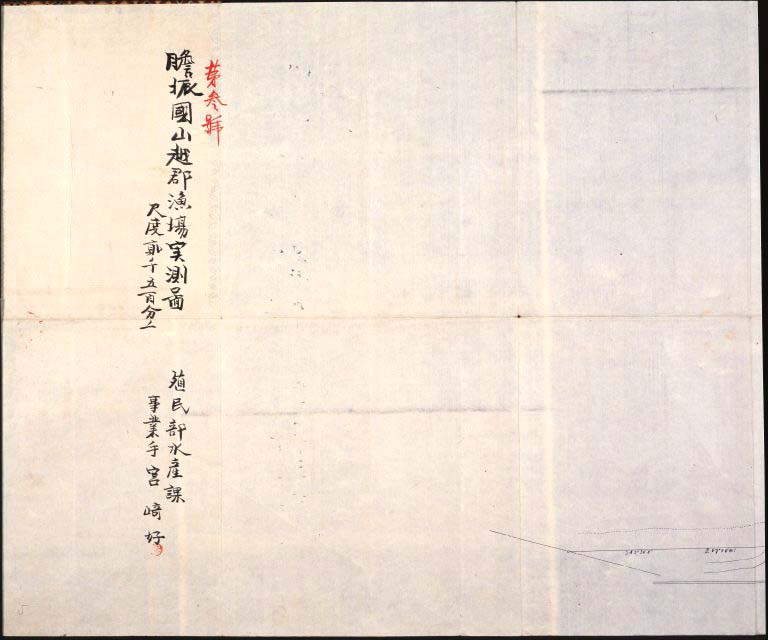 第叁號
膽振國山越郡漁場実測圖
尺度貳千五百分一
殖民部水産課
事業手宮﨑好